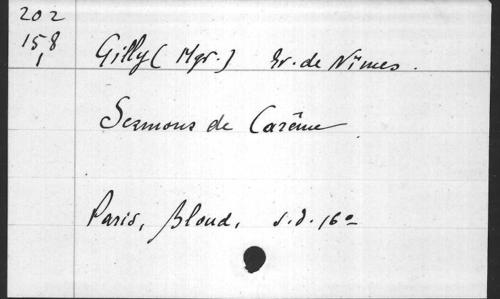 202
158
1
Gilly (Mgr.) Ev. de Nîmes.
Sermons de Carême
Paris, Bloud, s.d. 16º